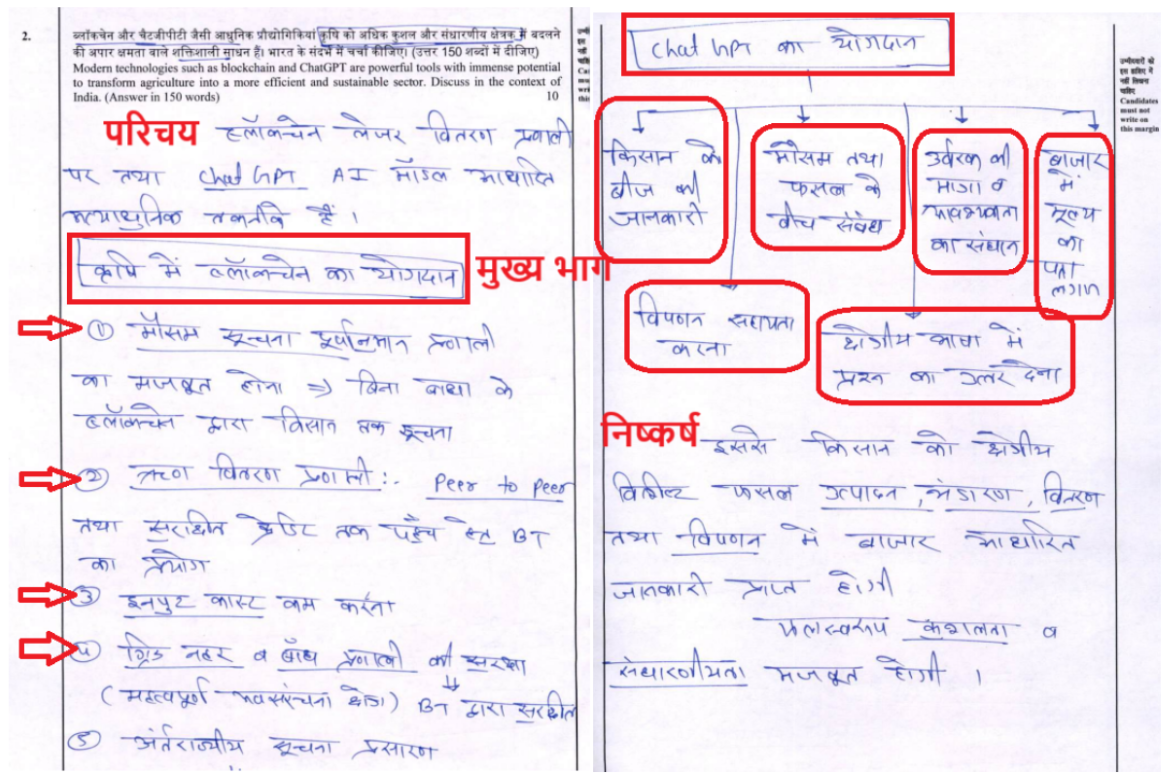 2.
ब्लॉकचेन और चैटजीपीटी जैसी आधुनिक प्रौद्योगिकियां कृषि को अधिक कुशल और संधारणीय क्षेत्रक में बदलने
की अपार क्षमता वाले शक्तिशाली साधन हैं। भारत के संदर्भ में चर्चा कीजिए। (उत्तर 150 शब्दों में दीजिए)
Modern technologies such as blockchain and ChatGPT are powerful tools with immense potential
to transform agriculture into a more efficient and sustainable sector. Discuss in the context of
India. (Answer in 150 words) 10
परिचय ब्लॉकचेन लेजर वितरण प्रणाली
पर तथा Chat GPT AI मॉडल आधारित
अत्याधुनिक तकनीके हैं।
कृषि में ब्लॉकचेन का योगदान
मुख्य भाग
① मौसम सूचना पूर्वानुमान प्रणाली
का मजबूत होना ⇒ बिना बाधा के
ब्लॉकचेन द्वारा किसान तक सूचना
② ऋण वितरण प्रणाली:- Peer to Peer
तथा सुरक्षित क्रेडिट तक पहुँच हेतु BT
का प्रयोग
③ इनपुट कास्ट कम करना
④ ग्रिड नहर व बाँध प्रणाली की सुरक्षा
(महत्वपूर्ण अवसंरचना क्षेत्र) BT द्वारा सुरक्षित
⑤ अंर्तराज्यीय सूचना प्रसारण
Chat GPT का योगदान
किसान को
बीज की
जानकारी
मौसम तथा
फसल के
बीच संबंध
उर्वरक की
मात्रा व
आवश्यकता
का संधान
बाजार
में
मूल्य
का
पता
लगाना
विपणन सहायता
करना
क्षेत्रीय भाषा में
प्रश्न का उत्तर देना
निष्कर्ष
इससे किसान को क्षेत्रीय
विशिष्ट फसल उत्पादन, भंडारण, वितरण
तथा विपणन में बाजार आधारित
जानकारी प्राप्त होगी
फलस्वरूप कुशलता व
संधारणीयता मजबूत होगी।
उम्मीदवारों को
इस हाशिए में
नहीं लिखना
चाहिए
Candidates
must not
write on
this margin